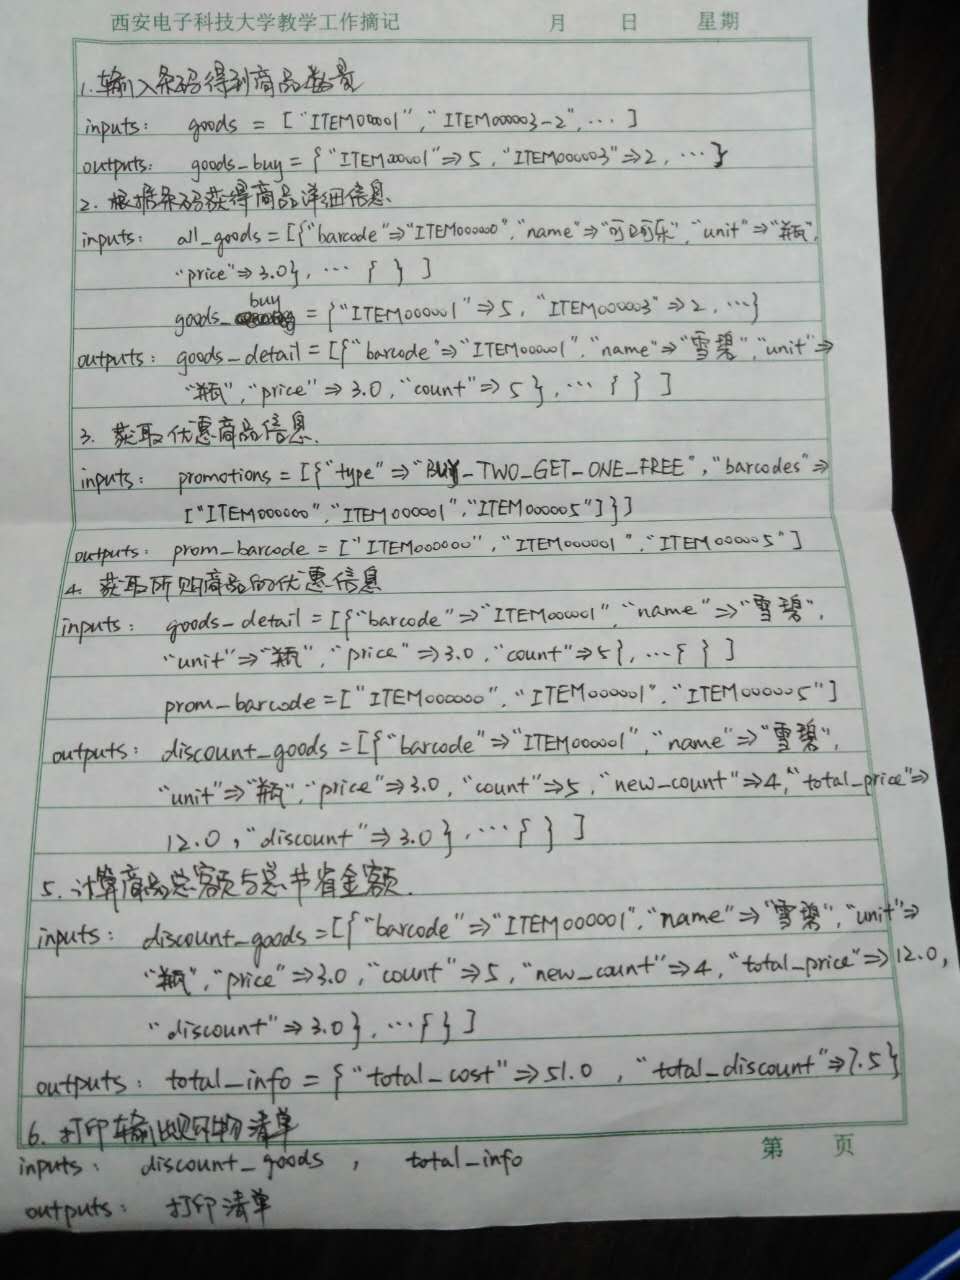 西安电子科技大学教学工作摘记 月 日 星期
1.输入条码得到商品数量
inputs: goods = ["ITEM00001","ITEM000003-2",…]
outputs: goods_buy = {"ITEM000001"=>5,"ITEM000003"=>2,…}
2.根据条码获得商品详细信息.
inputs: all_goods=[{"barcode"=>"ITEM000000","name"=>"可口可乐","unit"=>"瓶",
"price"=>3.0},…{ }]
buy
goods_ = {"ITEM000001"=>5,"ITEM000003"=>2,…}
outputs: goods_detail=[{"barcode"=>"ITEM000001","name"=>"雪碧","unit"=>
"瓶","price"=>3.0,"count"=>5},…{ }]
3.获取优惠商品信息.
inputs: promotions=[{"type"=>"BUY_TWO_GET_ONE_FREE","barcodes"=>
["ITEM000000","ITEM000001","ITEM000005"]}]
outputs: prom_barcode=["ITEM000000","ITEM000001","ITEM000005"]
4.获取所购商品的优惠信息
inputs: goods_detail=[{"barcode"=>"ITEM000001","name"=>"雪碧",
"unit"=>"瓶","price"=>3.0,"count"=>5},…{ }]
prom_barcode=["ITEM000000","ITEM000001","ITEM000005"]
outputs: discount_goods=[{"barcode"=>"ITEM000001","name"=>"雪碧",
"unit"=>"瓶","price"=>3.0,"count"=>5,"new_count"=>4,"total_price"=>
12.0,"discount"=>3.0},…{ }]
5.计算商品总额与总节省金额.
inputs: discount_goods=[{"barcode"=>"ITEM000001","name"=>"雪碧","unit"=>
"瓶","price"=>3.0,"count"=>5,"new_count"=>4,"total_price"=>12.0,
"discount"=>3.0},…{ }]
outputs: total_info={"total_cost"=>51.0,"total_discount"=>7.5}
6.打印输出购物清单
inputs: discount_goods, total_info
第 页
outputs: 打印清单